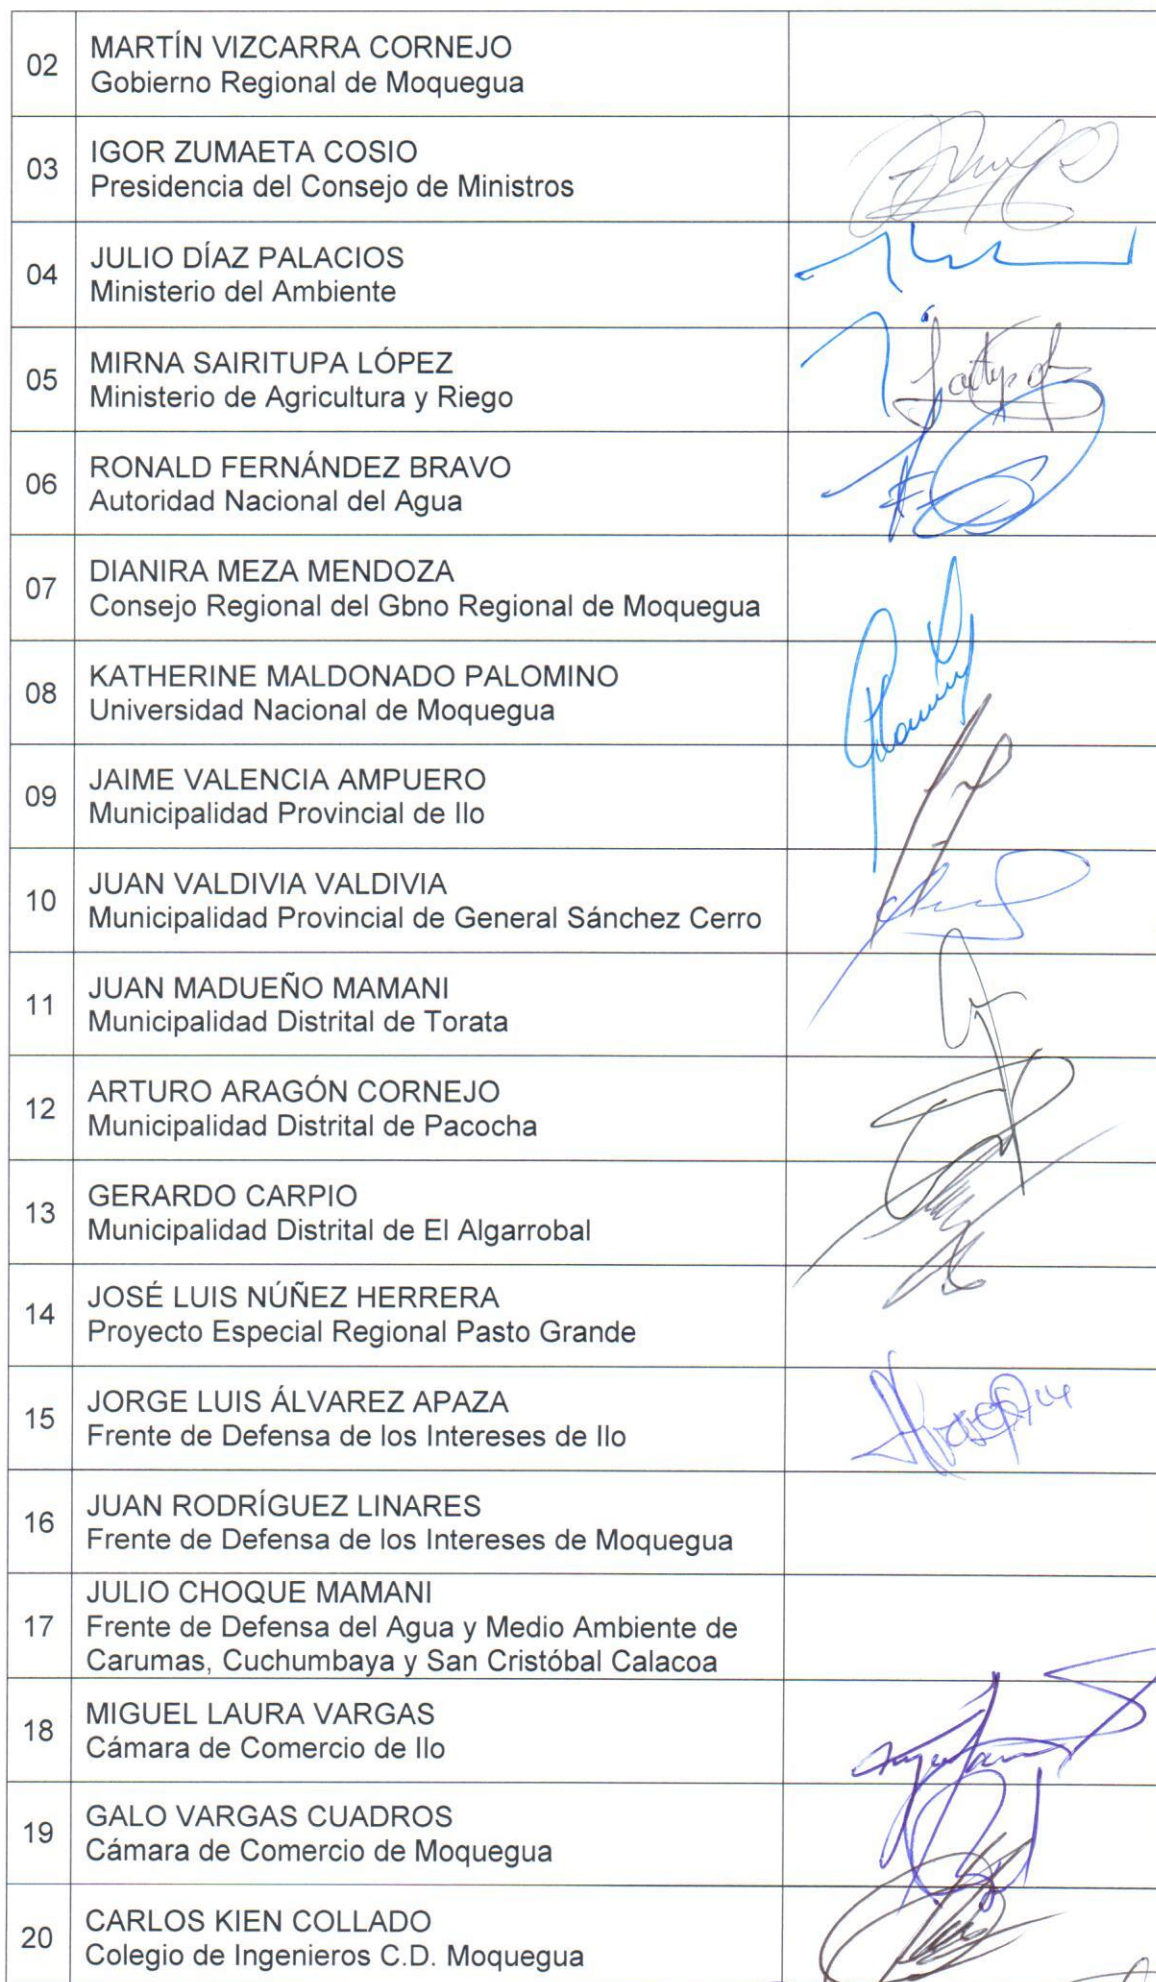 02
MARTÍN VIZCARRA CORNEJO
Gobierno Regional de Moquegua
03
IGOR ZUMAETA COSIO
Presidencia del Consejo de Ministros
04
JULIO DÍAZ PALACIOS
Ministerio del Ambiente
05
MIRNA SAIRITUPA LÓPEZ
Ministerio de Agricultura y Riego
06
RONALD FERNÁNDEZ BRAVO
Autoridad Nacional del Agua
07
DIANIRA MEZA MENDOZA
Consejo Regional del Gbno Regional de Moquegua
08
KATHERINE MALDONADO PALOMINO
Universidad Nacional de Moquegua
09
JAIME VALENCIA AMPUERO
Municipalidad Provincial de Ilo
10
JUAN VALDIVIA VALDIVIA
Municipalidad Provincial de General Sánchez Cerro
11
JUAN MADUEÑO MAMANI
Municipalidad Distrital de Torata
12
ARTURO ARAGÓN CORNEJO
Municipalidad Distrital de Pacocha
13
GERARDO CARPIO
Municipalidad Distrital de El Algarrobal
14
JOSÉ LUIS NÚÑEZ HERRERA
Proyecto Especial Regional Pasto Grande
15
JORGE LUIS ÁLVAREZ APAZA
Frente de Defensa de los Intereses de Ilo
16
JUAN RODRÍGUEZ LINARES
Frente de Defensa de los Intereses de Moquegua
17
JULIO CHOQUE MAMANI
Frente de Defensa del Agua y Medio Ambiente de
Carumas, Cuchumbaya y San Cristóbal Calacoa
18
MIGUEL LAURA VARGAS
Cámara de Comercio de Ilo
19
GALO VARGAS CUADROS
Cámara de Comercio de Moquegua
20
CARLOS KIEN COLLADO
Colegio de Ingenieros C.D. Moquegua